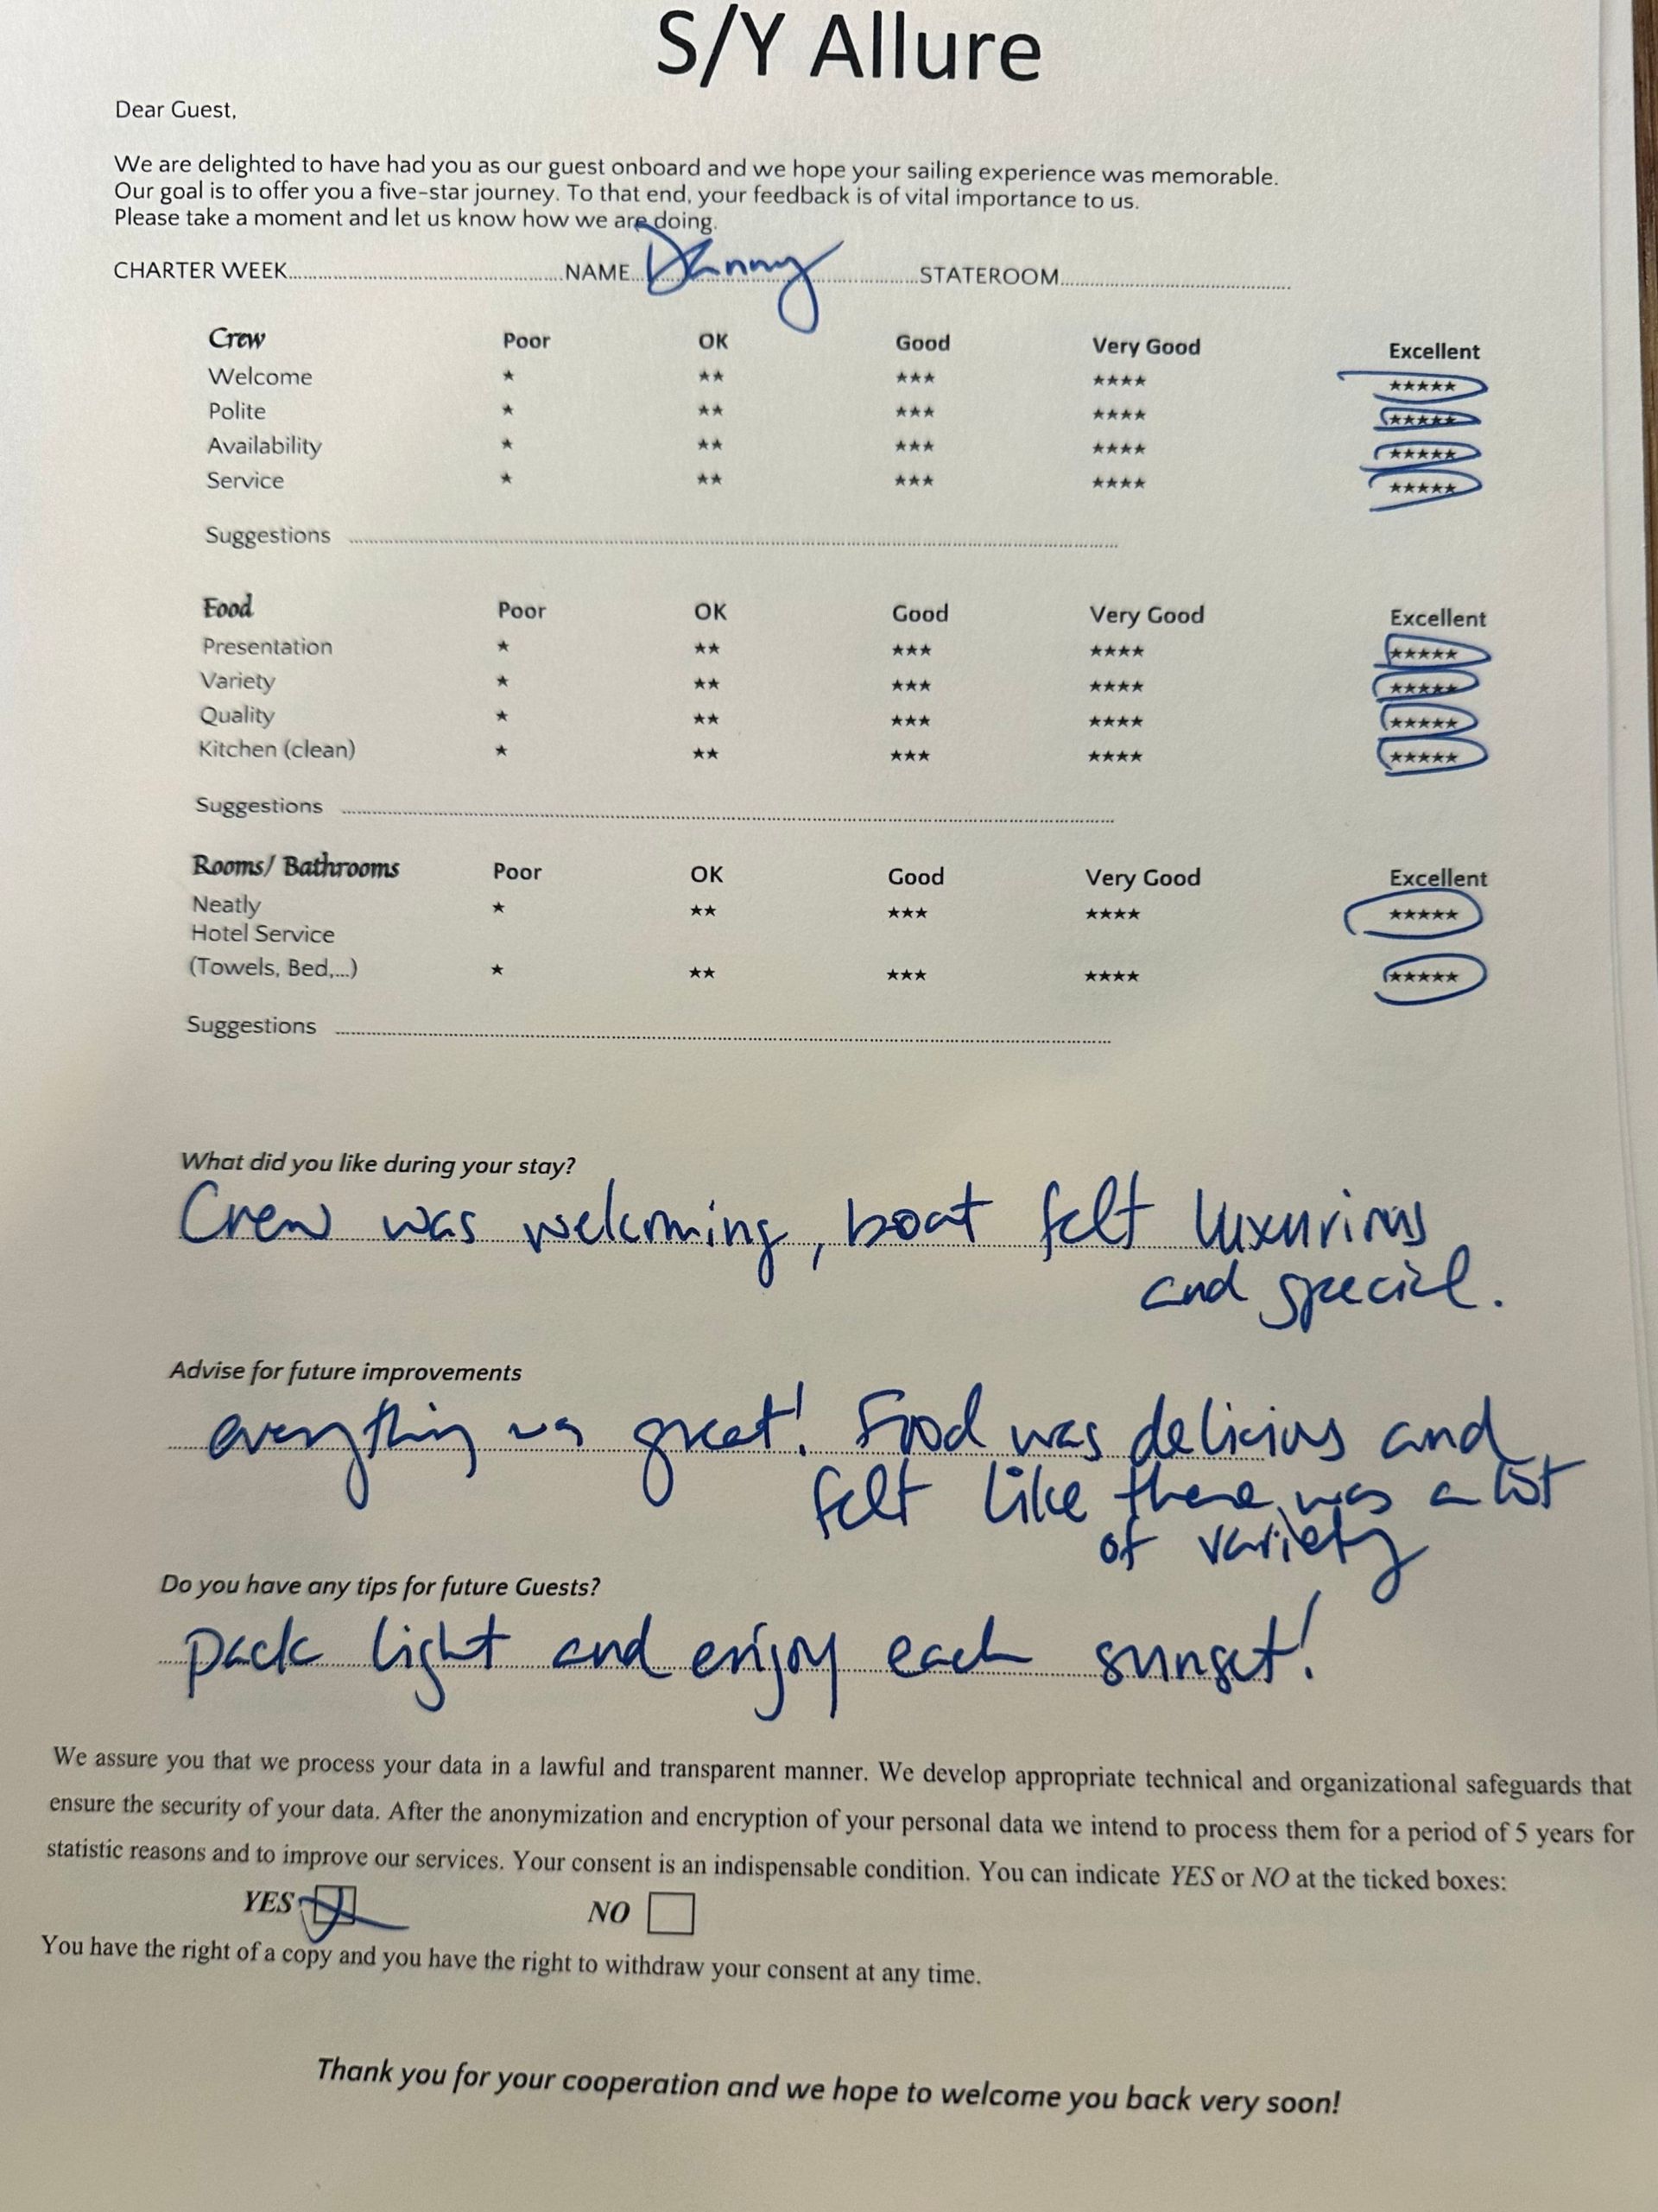 S/Y Allure
Dear Guest,
We are delighted to have had you as our guest onboard and we hope your sailing experience was memorable.
Our goal is to offer you a five-star journey. To that end, your feedback is of vital importance to us.
Please take a moment and let us know how we are doing.
CHARTER WEEK NAME Danny STATEROOM
Crew Poor OK Good Very Good Excellent
Welcome ★ ★★ ★★★ ★★★★ ★★★★★
Polite ★ ★★ ★★★ ★★★★ ★★★★★
Availability ★ ★★ ★★★ ★★★★ ★★★★★
Service ★ ★★ ★★★ ★★★★ ★★★★★
Suggestions
Food Poor OK Good Very Good Excellent
Presentation ★ ★★ ★★★ ★★★★ ★★★★★
Variety ★ ★★ ★★★ ★★★★ ★★★★★
Quality ★ ★★ ★★★ ★★★★ ★★★★★
Kitchen (clean) ★ ★★ ★★★ ★★★★ ★★★★★
Suggestions
Rooms/ Bathrooms Poor OK Good Very Good Excellent
Neatly ★ ★★ ★★★ ★★★★ ★★★★★
Hotel Service
(Towels, Bed,...) ★ ★★ ★★★ ★★★★ ★★★★★
Suggestions
What did you like during your stay?
Crew was welcoming, boat felt luxurious
and special.
Advise for future improvements
everything was great! Food was delicious and
felt like there was a lot
of variety
Do you have any tips for future Guests?
pack light and enjoy each sunset!
We assure you that we process your data in a lawful and transparent manner. We develop appropriate technical and organizational safeguards that
ensure the security of your data. After the anonymization and encryption of your personal data we intend to process them for a period of 5 years for
statistic reasons and to improve our services. Your consent is an indispensable condition. You can indicate YES or NO at the ticked boxes:
YES NO
You have the right of a copy and you have the right to withdraw your consent at any time.
Thank you for your cooperation and we hope to welcome you back very soon!